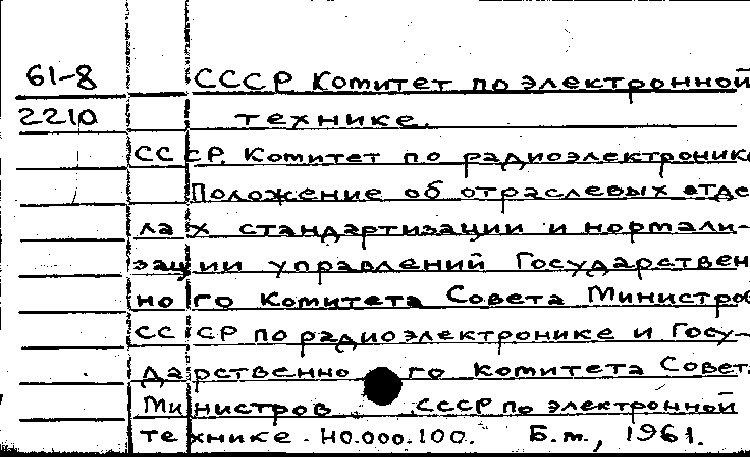 61-8 СССР Комитет по электронной
2210 технике.
СССР. Комитет по радиоэлектронике
Положение об отраслевых отде
лах стандартизации и нормали-
зации управлений Государствен
ного Комитета Совета Министров
СССР по радиоэлектронике и Госу-
дарственного комитета Совета
Министров СССР по электронной
технике. НО.000.100. Б.м., 1961.